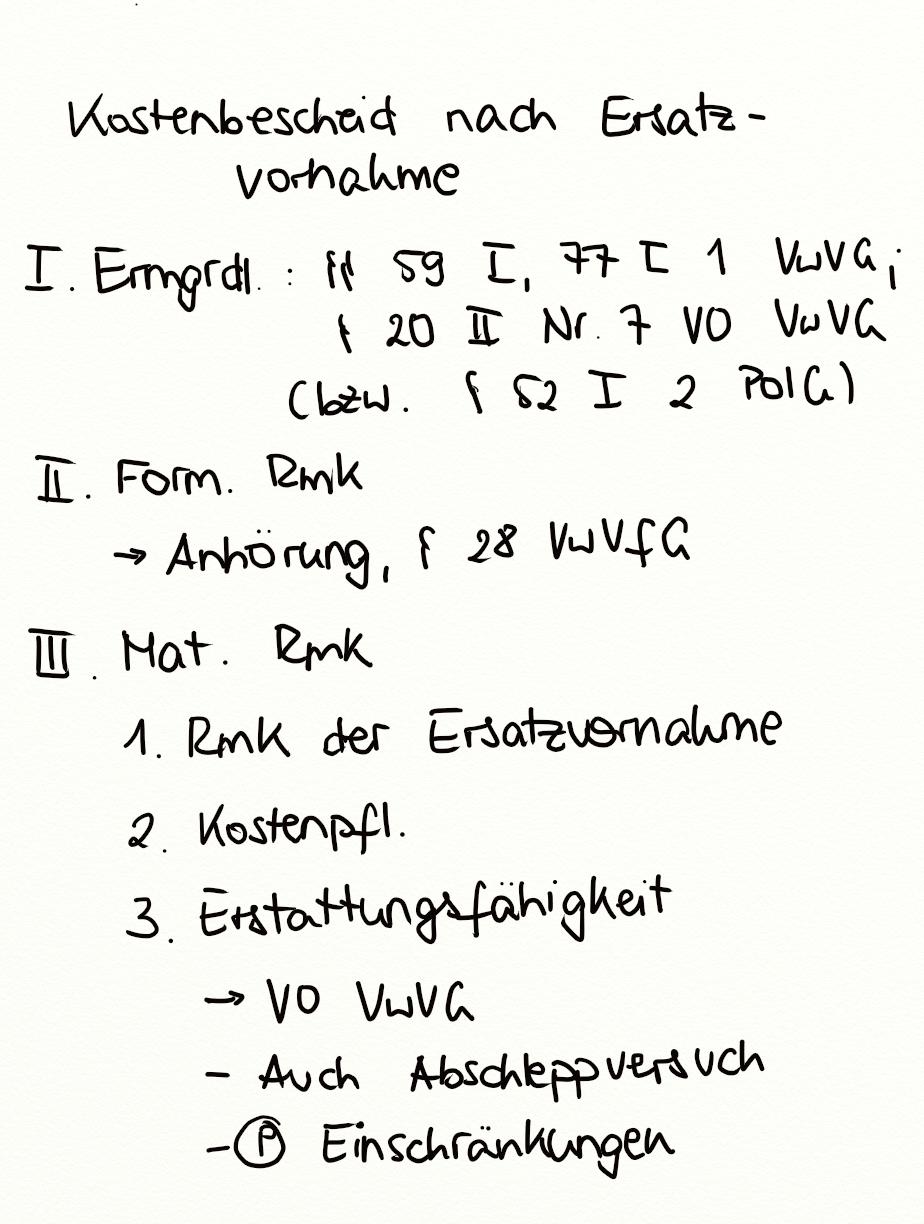 Kostenbescheid nach Ersatz-
vornahme
I. Ermgrdl.: §§ 59 I, 77 I 1 VwVG;
§ 20 II Nr. 7 VO VwVG
(bzw. § 52 I 2 PolG)
II. Form. Rmk
→ Anhörung, § 28 VwVfG
III. Mat. Rmk
1. Rmk der Ersatzvornahme
2. Kostenpfl.
3. Erstattungsfähigkeit
→ VO VwVG
- Auch Abschleppversuch
- Ⓟ Einschränkungen